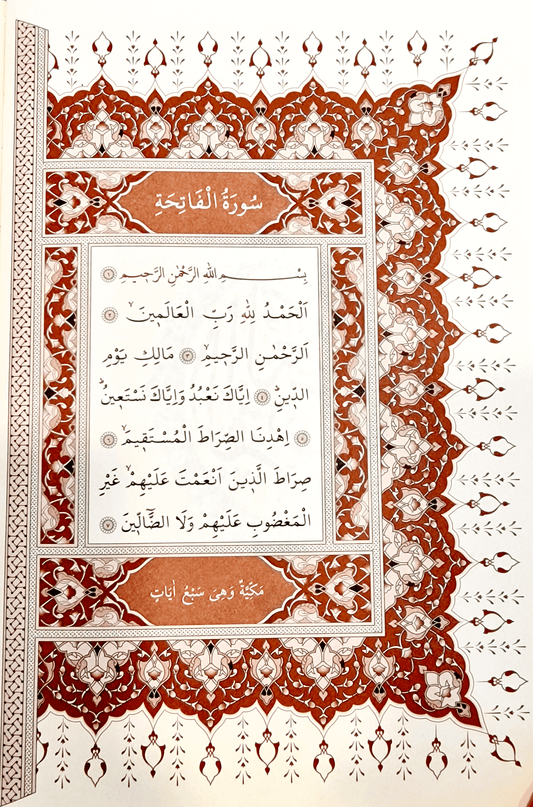 سُورَةُ الْفَاتِحَةِ
بِسْمِ اللهِ الرَّحْمٰنِ الرَّحٖيمِ ﴿١﴾
اَلْحَمْدُ لِلّٰهِ رَبِّ الْعَالَمٖينَۙ ﴿٢﴾
اَلرَّحْمٰنِ الرَّحٖيمِۙ ﴿٣﴾ مَالِكِ يَوْمِ
الدّٖينِؕ ﴿٤﴾ اِيَّاكَ نَعْبُدُ وَاِيَّاكَ نَسْتَعٖينُؕ
﴿٥﴾ اِهْدِنَا الصِّرَاطَ الْمُسْتَقٖيمَۙ ﴿٦﴾
صِرَاطَ الَّذٖينَ اَنْعَمْتَ عَلَيْهِمْۙ غَيْرِ
الْمَغْضُوبِ عَلَيْهِمْ وَلَا الضَّٓالّٖينَ ﴿٧﴾
مَكِّيَّةٌ وَهِىَ سَبْعُ اٰيَاتٍ